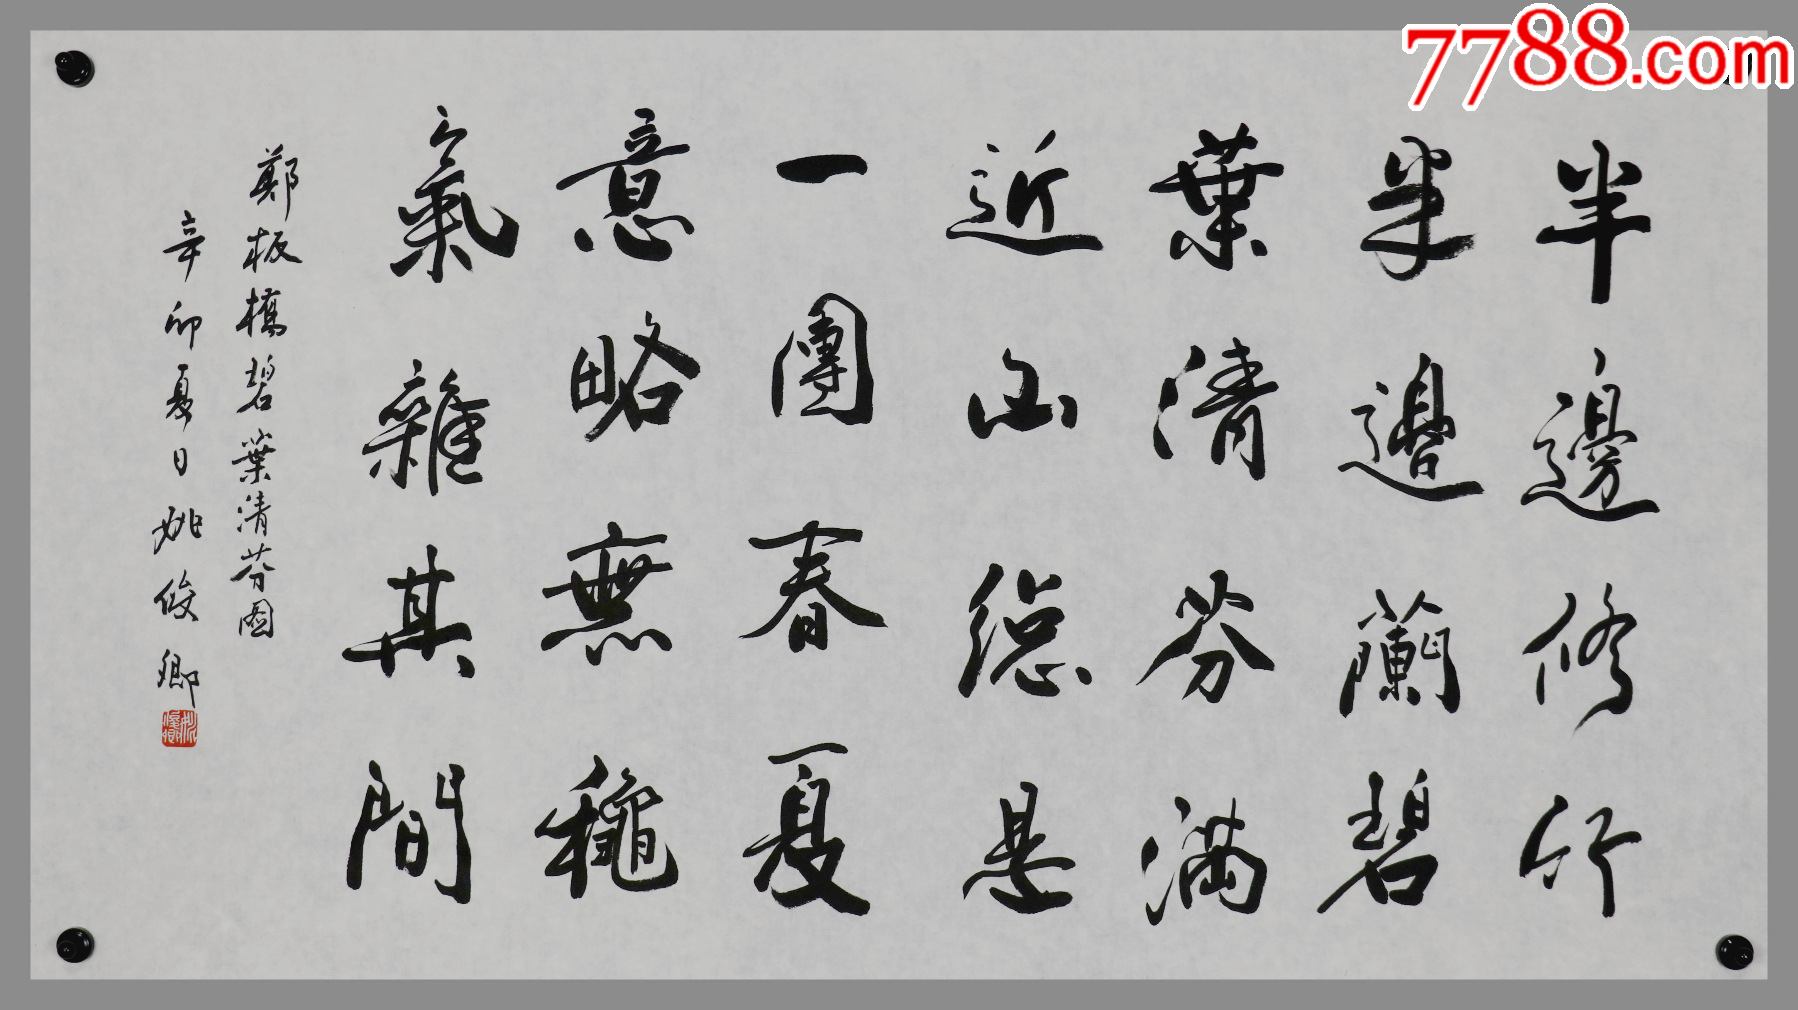 7788.com
半邊修竹
半邊蘭碧
葉清芬滿
近山總是
一團春夏
意略無穐
氣雜其間
鄭板橋碧葉清芬圖
辛卯夏日姚俊卿